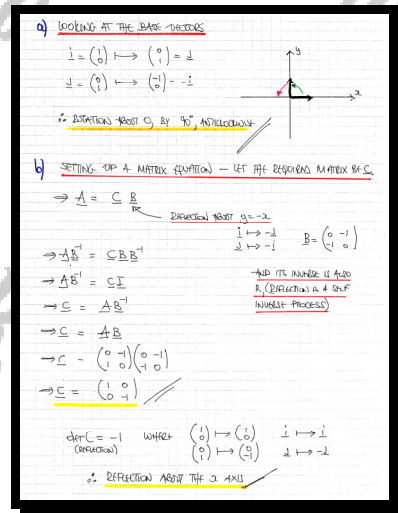 a) LOOKING AT THE BASE VECTORS
i = (1 0) ↦ (0 1) = j
j = (0 1) ↦ (-1 0) = -i
y
x
∴ ROTATION ABOUT O, BY 90°, ANTICLOCKWISE
b) SETTING UP A MATRIX EQUATION - LET THE REQUIRED MATRIX BE C
⇒ A = C B
REFLECTION ABOUT y=-x
i ↦ -j
j ↦ -i
B = (0 -1 -1 0)
⇒ AB⁻¹ = CBB⁻¹
⇒ AB⁻¹ = CI
⇒ C = AB⁻¹
⇒ C = AB
⇒ C = (0 -1 1 0)(0 -1 -1 0)
⇒ C = (1 0 0 -1)
AND ITS INVERSE IS ALSO
B, (REFLECTION IS A SELF
INVERSE PROCESS)
det C = -1 WHERE (1 0) ↦ (1 0) i ↦ i
(REFLECTION) (0 1) ↦ (0 -1) j ↦ -j
∴ REFLECTION ABOUT THE x AXIS